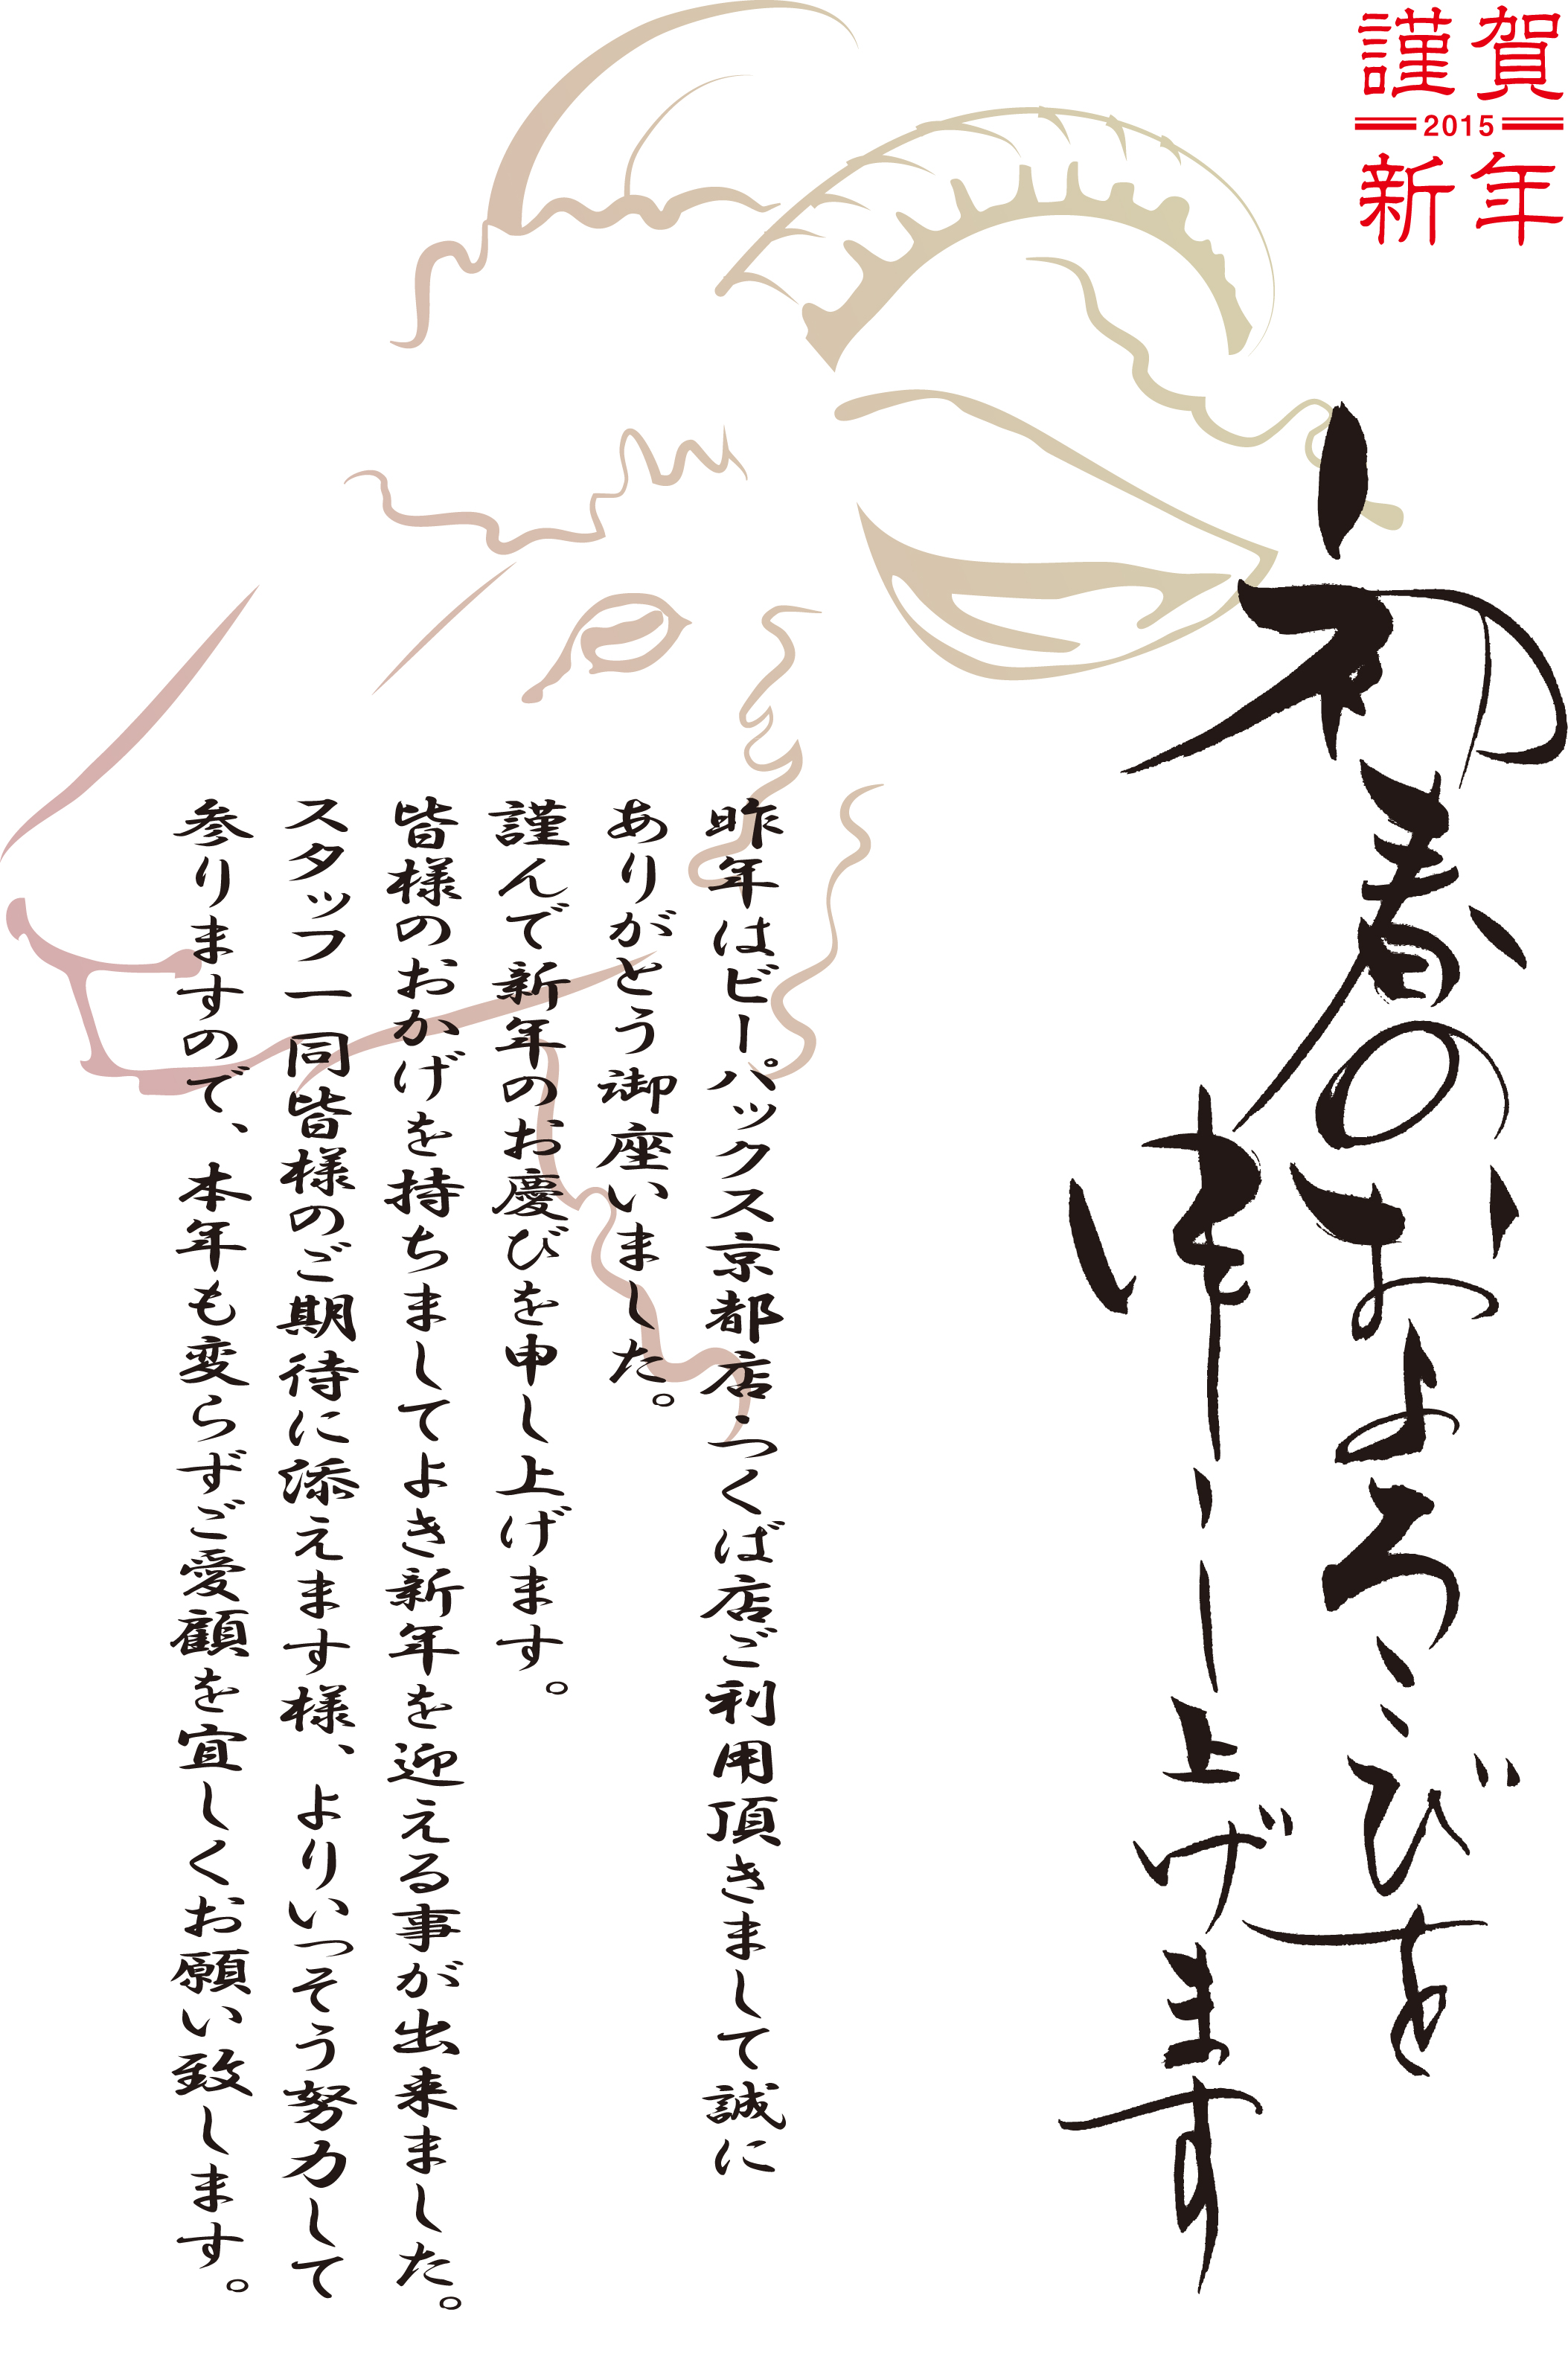 謹賀
2015
新年
初春のおよろこびを
申し上げます
昨年はビーパックス京都店・つくば店ご利用頂きまして誠に
ありがとう御座いました。
謹んで新年のお慶びを申し上げます。
皆様のおかげを持ちましてよき新年を迎える事が出来ました。
スタッフ一同皆様のご期待に添えます様、よりいっそう努力して
参りますので、本年も変らずご愛顧を宜しくお願い致します。